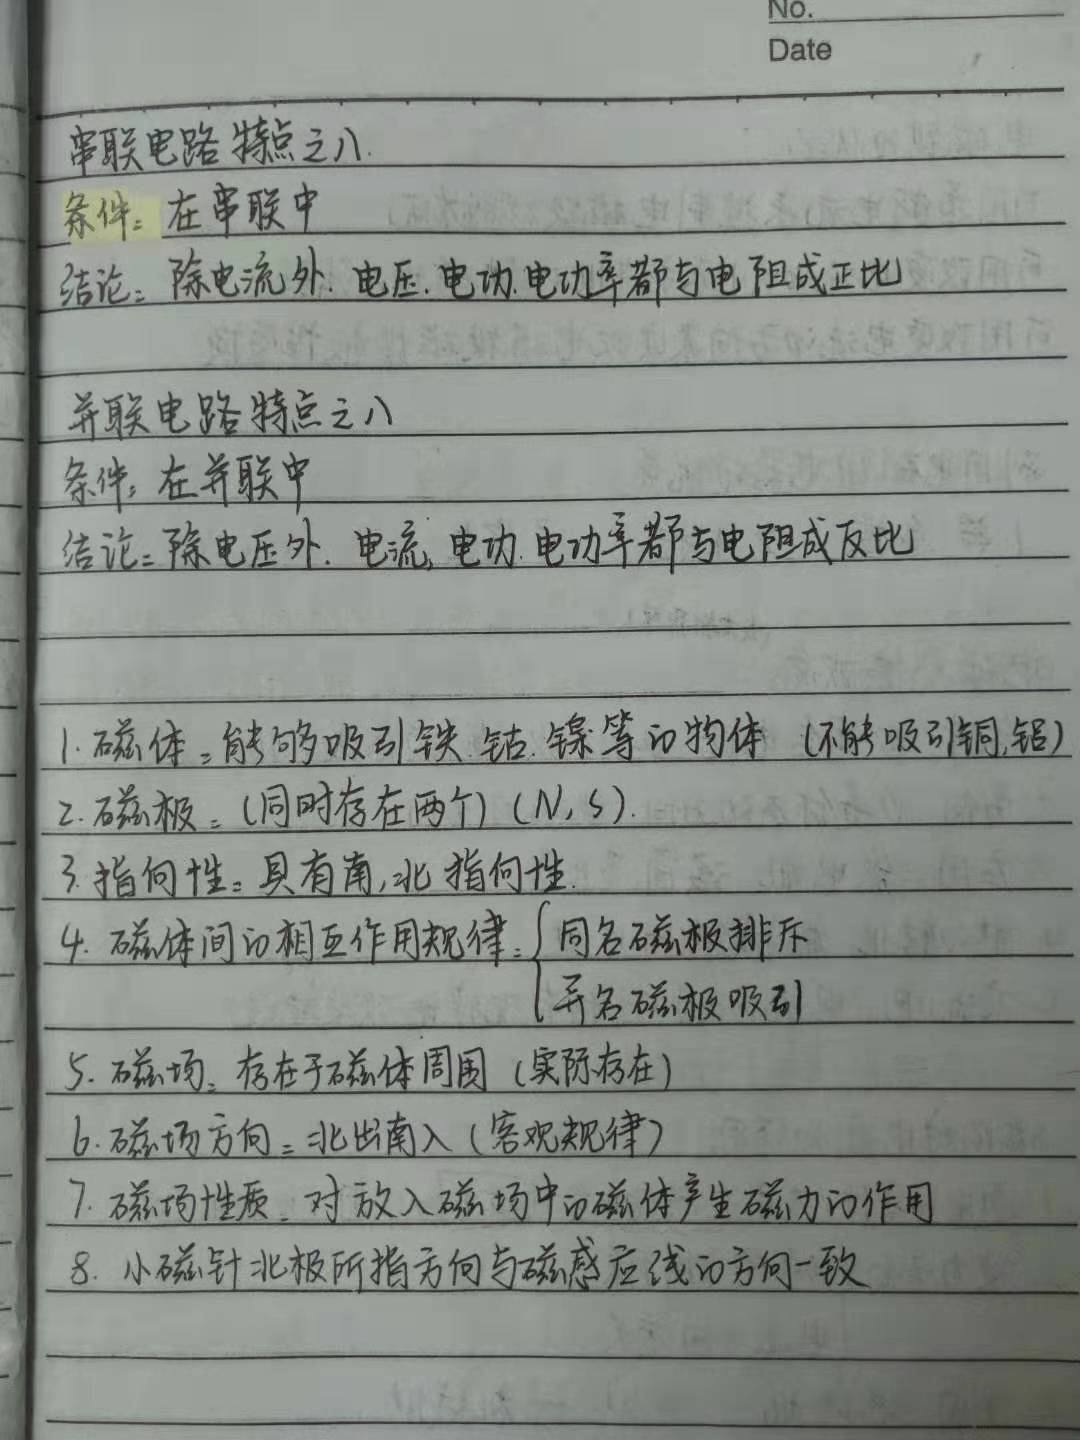 No.
Date
串联电路特点之八.
条件: 在串联中
结论: 除电流外. 电压. 电功. 电功率都与电阻成正比
并联电路特点之八
条件: 在并联中
结论: 除电压外. 电流, 电功. 电功率都与电阻成反比
1. 磁体: 能够吸引铁. 钴. 镍等的物体 (不能吸引铜, 铝)
2. 磁极: (同时存在两个) (N, S).
3. 指向性: 具有南, 北指向性.
4. 磁体间的相互作用规律: { 同名磁极排斥
异名磁极吸引
5. 磁场: 存在于磁体周围 (实际存在)
6. 磁场方向: 北出南入 (客观规律)
7. 磁场性质: 对放入磁场中的磁体产生磁力的作用
8. 小磁针北极所指方向与磁感应线的方向一致